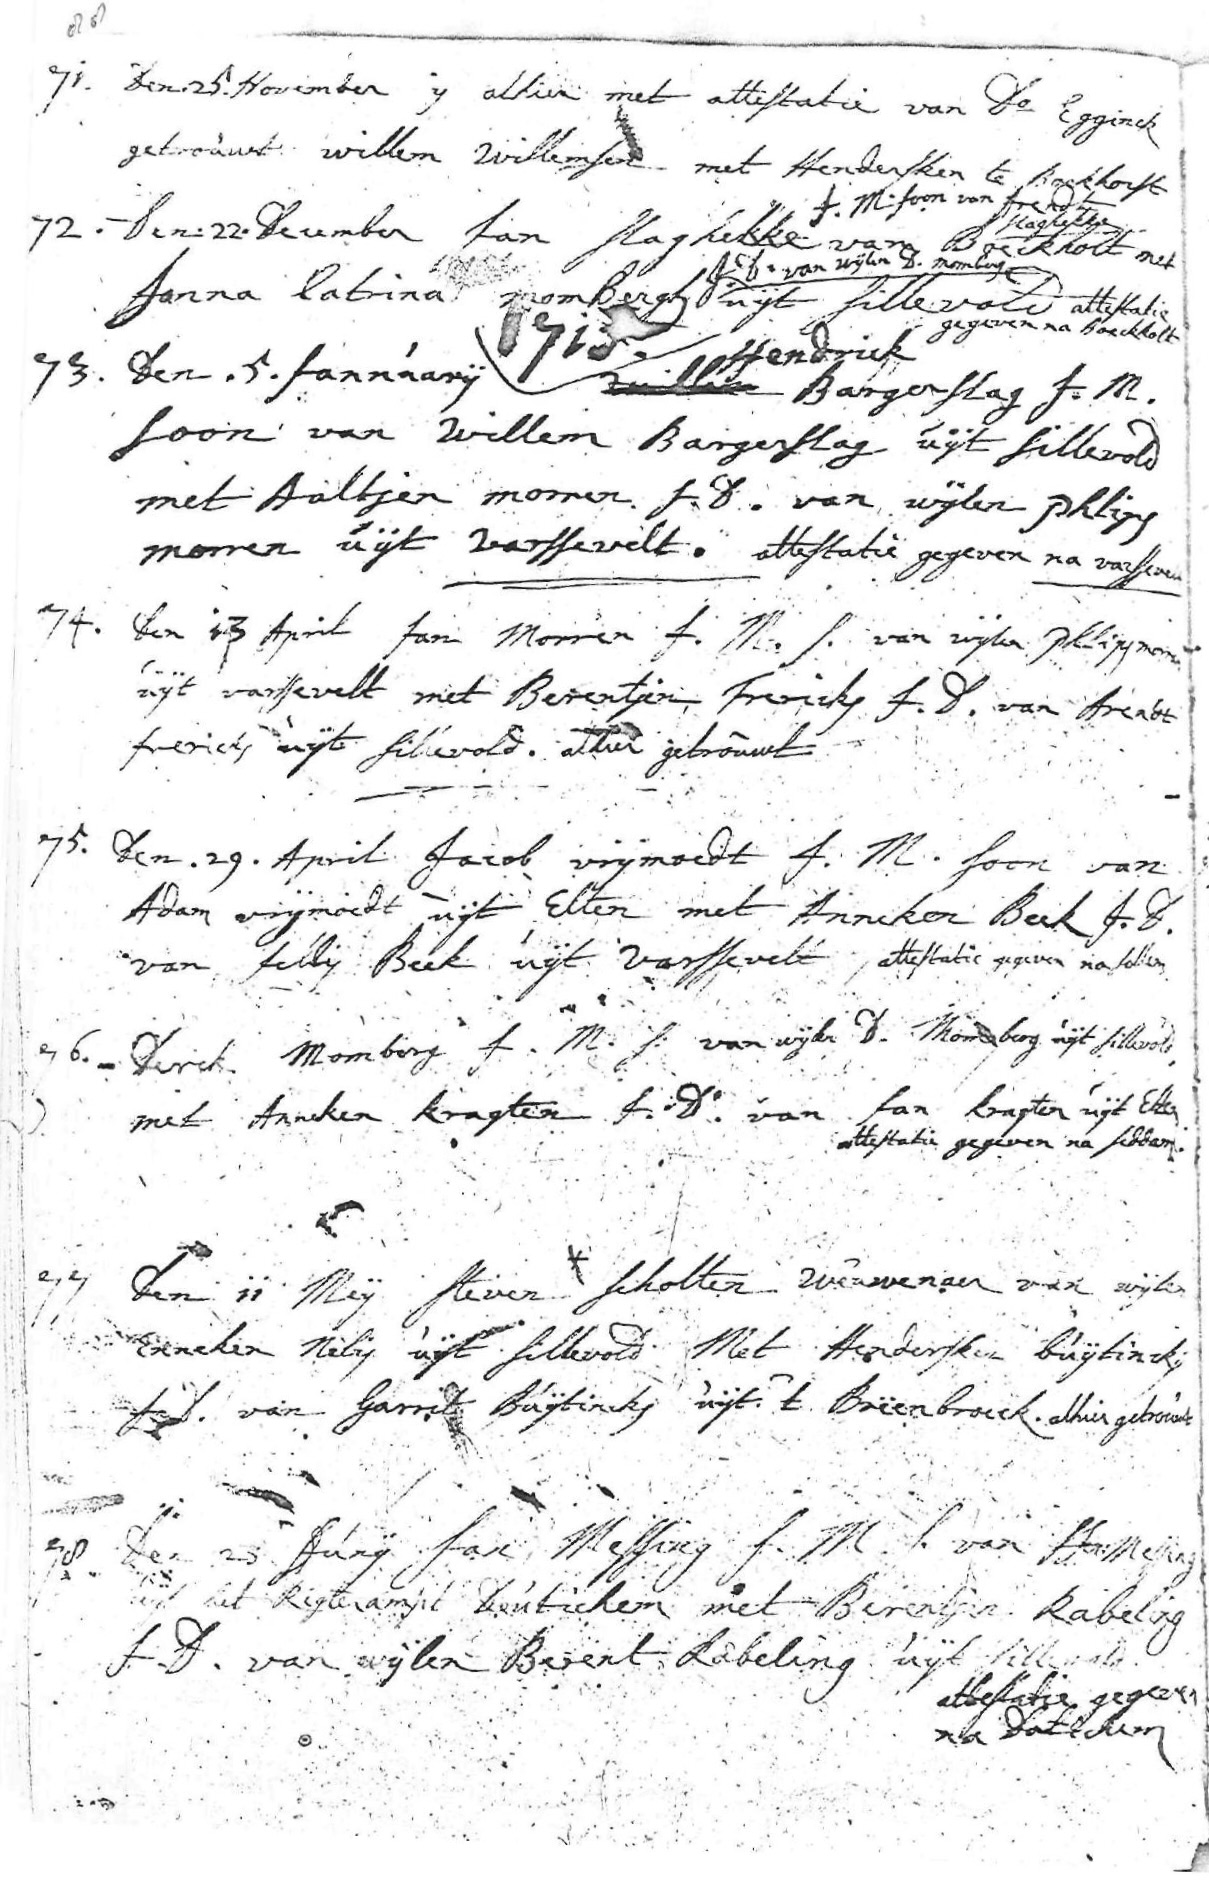 71. Den. 25. November ÿ alhier met attestatie van Do Egginck
getrouwt willem Willemsen met Hendersken te Boekhorst
J. M. soon van frendt
slaghekke
72. Den. 22. December Jan slaghekke van Boeckholt met
J. D. van wijlen D. momberg
Janna Catrina mombergh uijt sillevold attestatie
gegeven na Boeckholt
1713.
73. Den. 5. Jannuarÿ Hendrick Bargerslag J. M.
soon van Willem Bargerslag uijt sillevold
met Aaltjen morren J. D. van wijlen Phlips
morren uijt varssevelt. attestatie gegeven na varsseven
74. Den 13 April Jan Morren J. M. s. van wijlen Phlips morren
uijt varssevelt met Berentjen Frericks J. D. van Arendt
frericks uijt sillevold. alhier getrouwt
75. Den. 29. April Jacob vrijmoedt J. M. soon van
Adam vrijmoedt uijt Etten met Anneken Beek J. D.
van Beek uijt varssevelt attestatie gegeven na
76. Derck Momberg J. M. s. van wijlen D. Momberg uijt sillevold
met Anneken kragten J. D. van Jan kragten uijt Etten
attestatie gegeven na seddam.
77 Den 11 Meij steven scholten weuwenaer van wijlen
Enneken Nelis uijt sillevold Met Hendersken buijtincks
J. D. van Garrit Buijtincks uijt t Breenbroeck. alhier getrouwt
78. Den 25 Junÿ Jan Messing J. M. s. van Messing
uijt het Rigterampt Deutichem met Berentjen Rabeling
J. D. van wijlen Berent Rabeling uijt sillevold
attestatie gegeven
na Dotechem